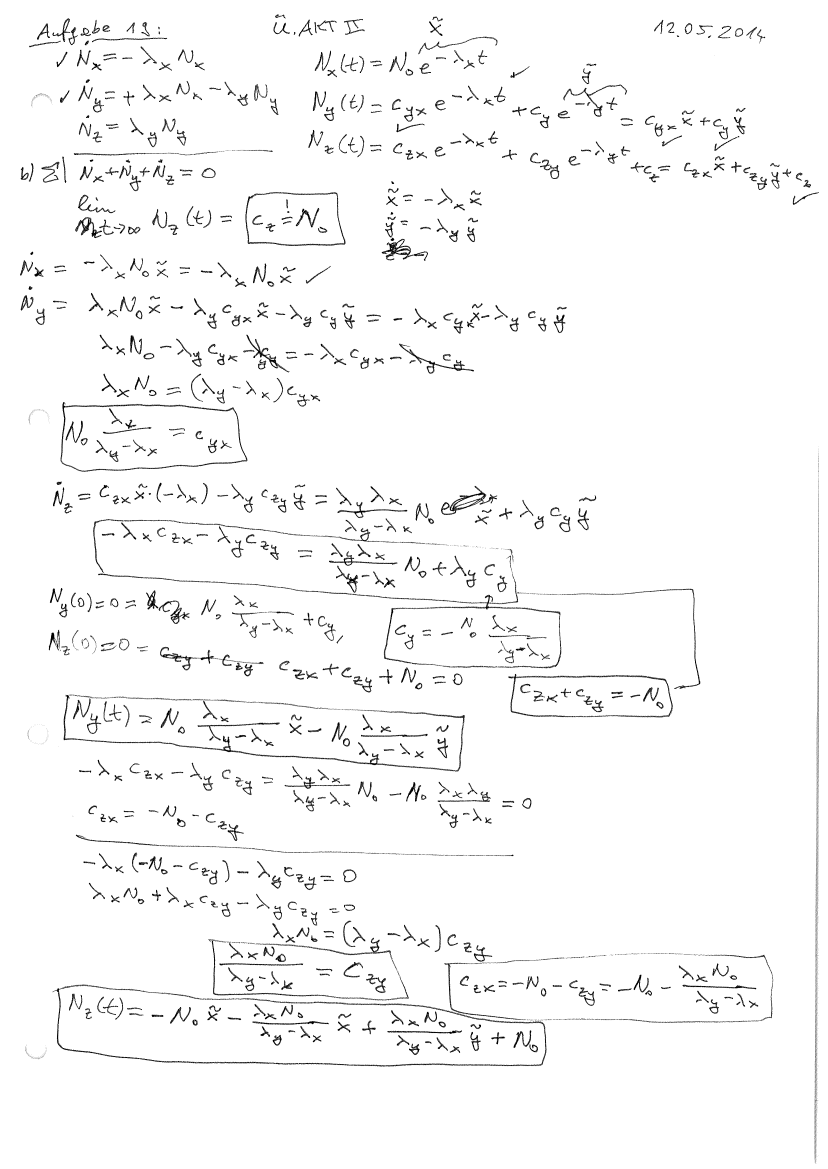 Aufgabe 19: Ü. AKT II 12.05.2014
✓ Ṅ_x = -λ_x N_x   N_x(t) = N_0 e^{-λ_x t} ✓   x̃
✓ Ṅ_y = +λ_x N_x - λ_y N_y   N_y(t) = c_{yx} e^{-λ_x t} + c_y e^{-λ_y t} = c_{yx} x̃ + c_y ỹ   ỹ
Ṅ_z = λ_y N_y   N_z(t) = c_{zx} e^{-λ_x t} + c_{zy} e^{-λ_y t} + c_z = c_{zx} x̃ + c_{zy} ỹ + c_z ✓
b) Σ| Ṅ_x + Ṅ_y + Ṅ_z = 0
lim t→∞ N_z(t) = c_z =! N_0   ẋ̃ = -λ_x x̃
ẏ̃ = -λ_y ỹ
Ṅ_x = -λ_x N_0 x̃ = -λ_x N_0 x̃ ✓
Ṅ_y = λ_x N_0 x̃ - λ_y c_{yx} x̃ - λ_y c_y ỹ = -λ_x c_{yx} x̃ - λ_y c_y ỹ
λ_x N_0 - λ_y c_{yx} - λ_y c_y = -λ_x c_{yx} - λ_y c_y
λ_x N_0 = (λ_y - λ_x) c_{yx}
N_0 λ_x/(λ_y - λ_x) = c_{yx}
Ṅ_z = c_{zx} x̃·(-λ_x) - λ_y c_{zy} ỹ = λ_y λ_x/(λ_y - λ_x) N_0 x̃ + λ_y c_y ỹ
-λ_x c_{zx} - λ_y c_{zy} = λ_y λ_x/(λ_y - λ_x) N_0 + λ_y c_y
N_y(0) = 0 = N_0 λ_x/(λ_y - λ_x) + c_y,   c_y = -N_0 λ_x/(λ_y - λ_x)
N_z(0) = 0 = c_{zy} + c_{zy} c_{zx} + c_{zy} + N_0 = 0   c_{zx} + c_{zy} = -N_0
N_y(t) = N_0 λ_x/(λ_y - λ_x) x̃ - N_0 λ_x/(λ_y - λ_x) ỹ
-λ_x c_{zx} - λ_y c_{zy} = λ_y λ_x/(λ_y - λ_x) N_0 - N_0 λ_x λ_y/(λ_y - λ_x) = 0
c_{zx} = -N_0 - c_{zy}
-λ_x(-N_0 - c_{zy}) - λ_y c_{zy} = 0
λ_x N_0 + λ_x c_{zy} - λ_y c_{zy} = 0
λ_x N_0 = (λ_y - λ_x) c_{zy}
λ_x N_0/(λ_y - λ_x) = c_{zy}   c_{zx} = -N_0 - c_{zy} = -N_0 - λ_x N_0/(λ_y - λ_x)
N_z(t) = -N_0 x̃ - λ_x N_0/(λ_y - λ_x) x̃ + λ_x N_0/(λ_y - λ_x) ỹ + N_0